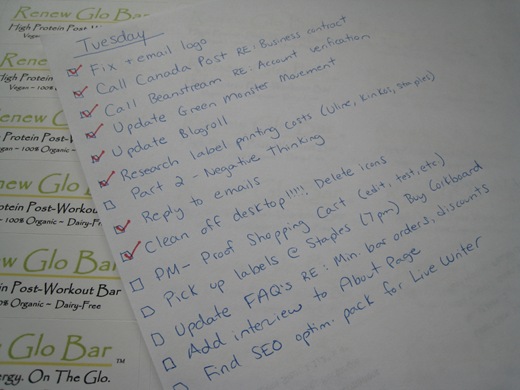 Renew Glo Bar
High Protein Post-W
Vegan
Rene
High Protein
Vegan ~ 100%
ew Glo
Protein Post-W
gan ~ 100% Organic ~ D
enew Gl
Protein Post-Wo
~ 100% Organic ~ Dair
new Glo
otein Post-Workou
100% Organic ~ Dairy-F
w Glo Ba
Post-Workout Bar
0% Organic ~ Dairy-Free
Glo Bar™
ergy. On The Glo.
Tuesday
Fix + email logo
Call Canada Post RE: Business contract
Call Beanstream RE: Account verification
Update Green Monster Movement
Update Blogroll
Research label printing costs (Uline, Kinkos, staples)
Part 2 - Negative Thinking
Reply to emails
Clean off desktop!!!! Delete icons
PM- Proof Shopping Cart (edit, test, etc)
Pick up labels @ Staples (7pm) Buy Corkboard
Update FAQ's RE: Min. bar orders, discounts
Add interview to About Page
Find SEO optim. pack for Live Writer